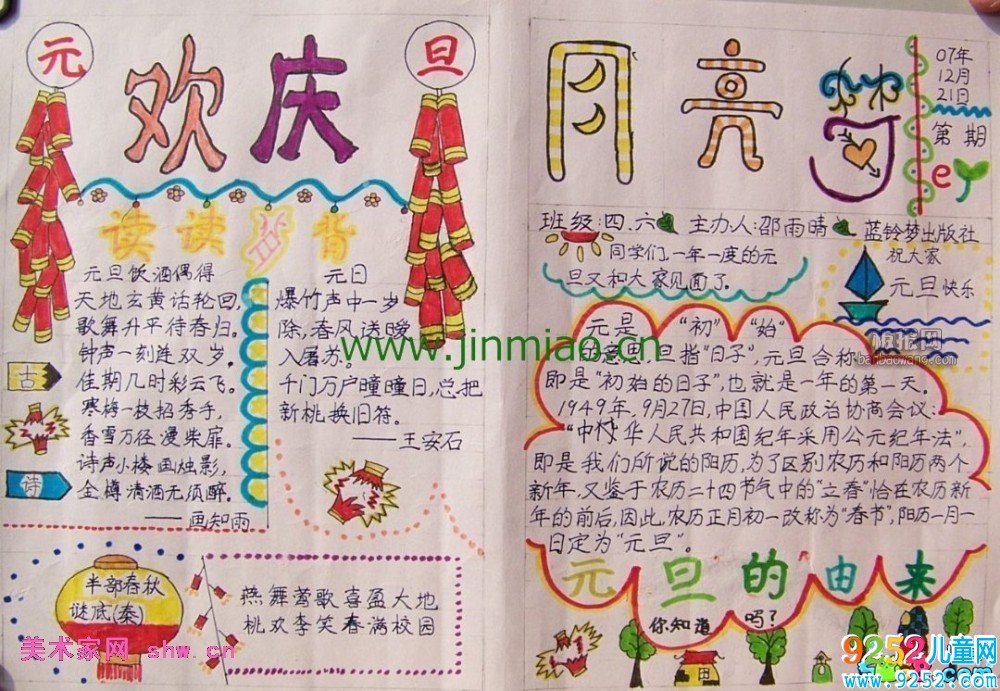 元
欢庆
旦
读读背背
元旦饮酒偶得
天地玄黄话轮回,
歌舞升平待春归。
钟声一刻连双岁,
佳期几时彩云飞。
寒梅一枝招秀手,
香雪万径漫柴扉。
诗声小楼画烛影,
金樽清酒无须醉。
——画知雨
古
诗
元日
爆竹声中一岁
除,春风送暖
入屠苏。
千门万户曈曈日,总把
新桃换旧符。
——王安石
半部春秋
谜底(秦)
燕舞莺歌喜盈大地
桃欢李笑春满校园
月亮
07年
12月
21日
第 期
班级:四.六 主办人:邵雨晴 蓝铃梦出版社
同学们,一年一度的元
旦又和大家见面了。
祝大家
元旦快乐
元是 “初” “始”
的意思,旦指“日子”,元旦合称
即是“初始的日子”,也就是一年的第一天。
1949年,9月27日,中国人民政治协商会议:
“中华人民共和国纪年采用公元纪年法”,
即是我们所说的阳历,为了区别农历和阳历两个
新年,又鉴于农历二十四节气中的“立春”恰在农历新
年的前后,因此,农历正月初一改称为“春节”,阳历一月一
日定为“元旦”。
元旦的由来
你知道 吗?
www.jinmiao.cn
版报网
banbaowang.com
美术家网 shw.cn
9252儿童网
www.9252.com